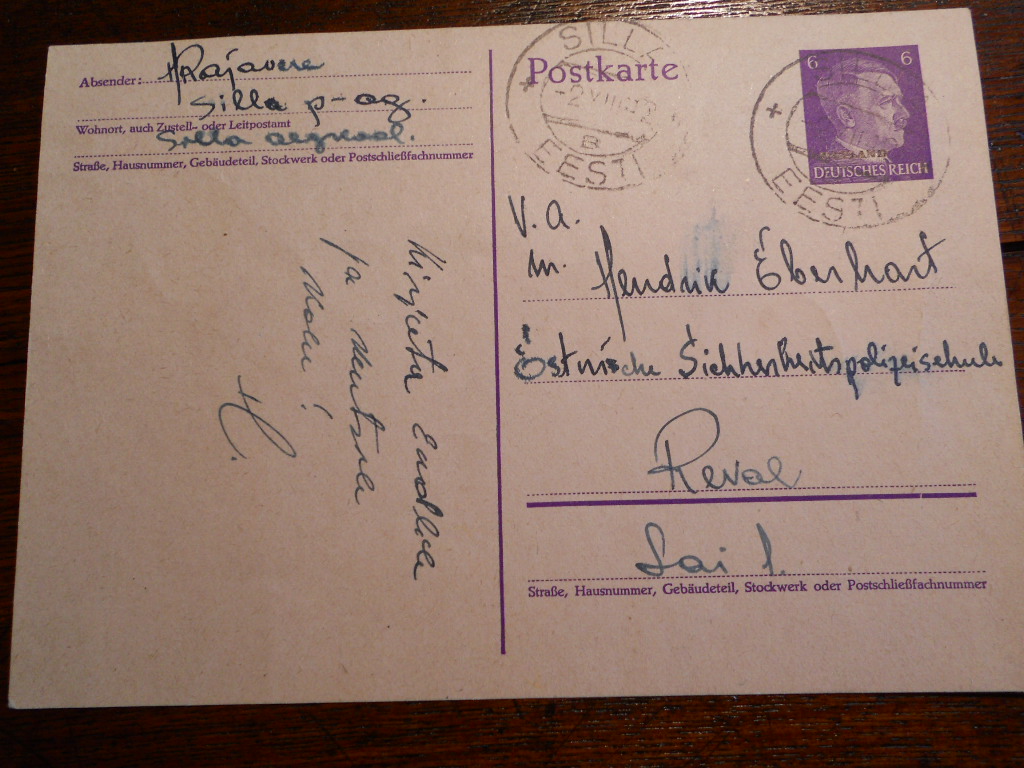 Absender: HRajavere
Silla p-ag.
Wohnort, auch Zustell- oder Leitpostamt
Silla algkool.
Straße, Hausnummer, Gebäudeteil, Stockwerk oder Postschließfachnummer
Kirjuta
ja
H.
Postkarte
SILLA
EESTI
B
6 6
OSTLAND
DEUTSCHES REICH
EESTI
V. a.
m. Hendrik Eberhart
Östnische Sichherheitspolizeischule
Reval
Lai 1.
Straße, Hausnummer, Gebäudeteil, Stockwerk oder Postschließfachnummer